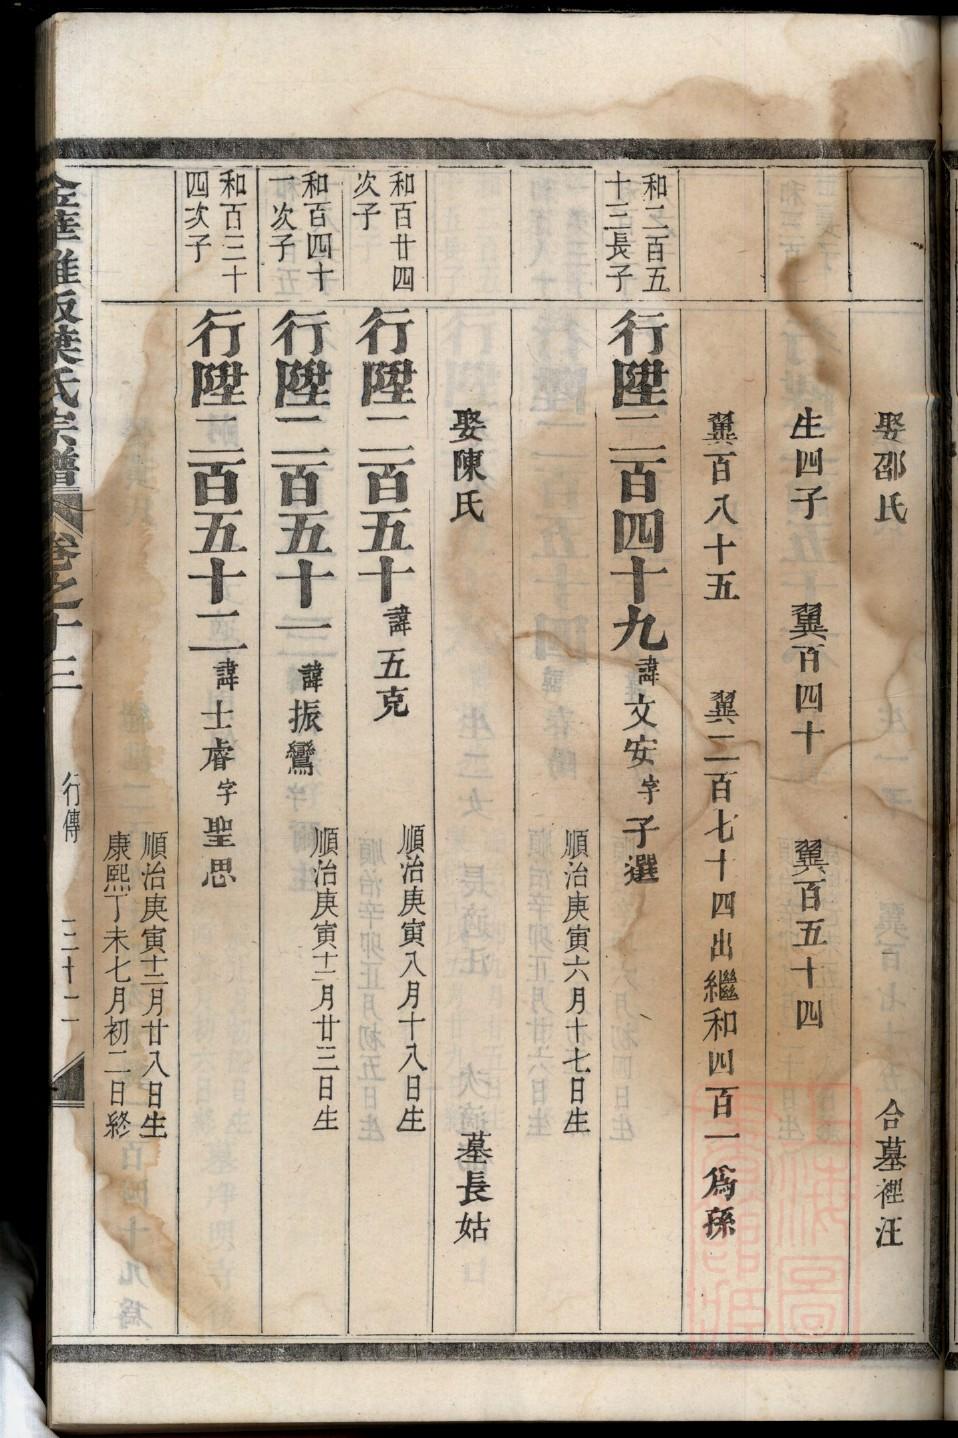 娶邵氏 合墓裡汪
生四子 翼百四十 翼百五十四
翼百八十五 翼二百七十四出繼和四百一爲孫
和二百五十三長子
行陞二百四十九 諱文安字子選 順治庚寅六月十七日生
娶陳氏 墓長姑
和百廿四次子
行陞二百五十 諱五克 順治庚寅八月十八日生
和百四十一次子
行陞二百五十一 諱振鸞 順治庚寅十二月廿三日生
和百三十四次子
行陞二百五十二 諱士睿字聖思
順治庚寅十二月廿八日生
康熙丁未七月初二日終
金華雅畈葉氏宗譜 卷之十三 行傳 三十二